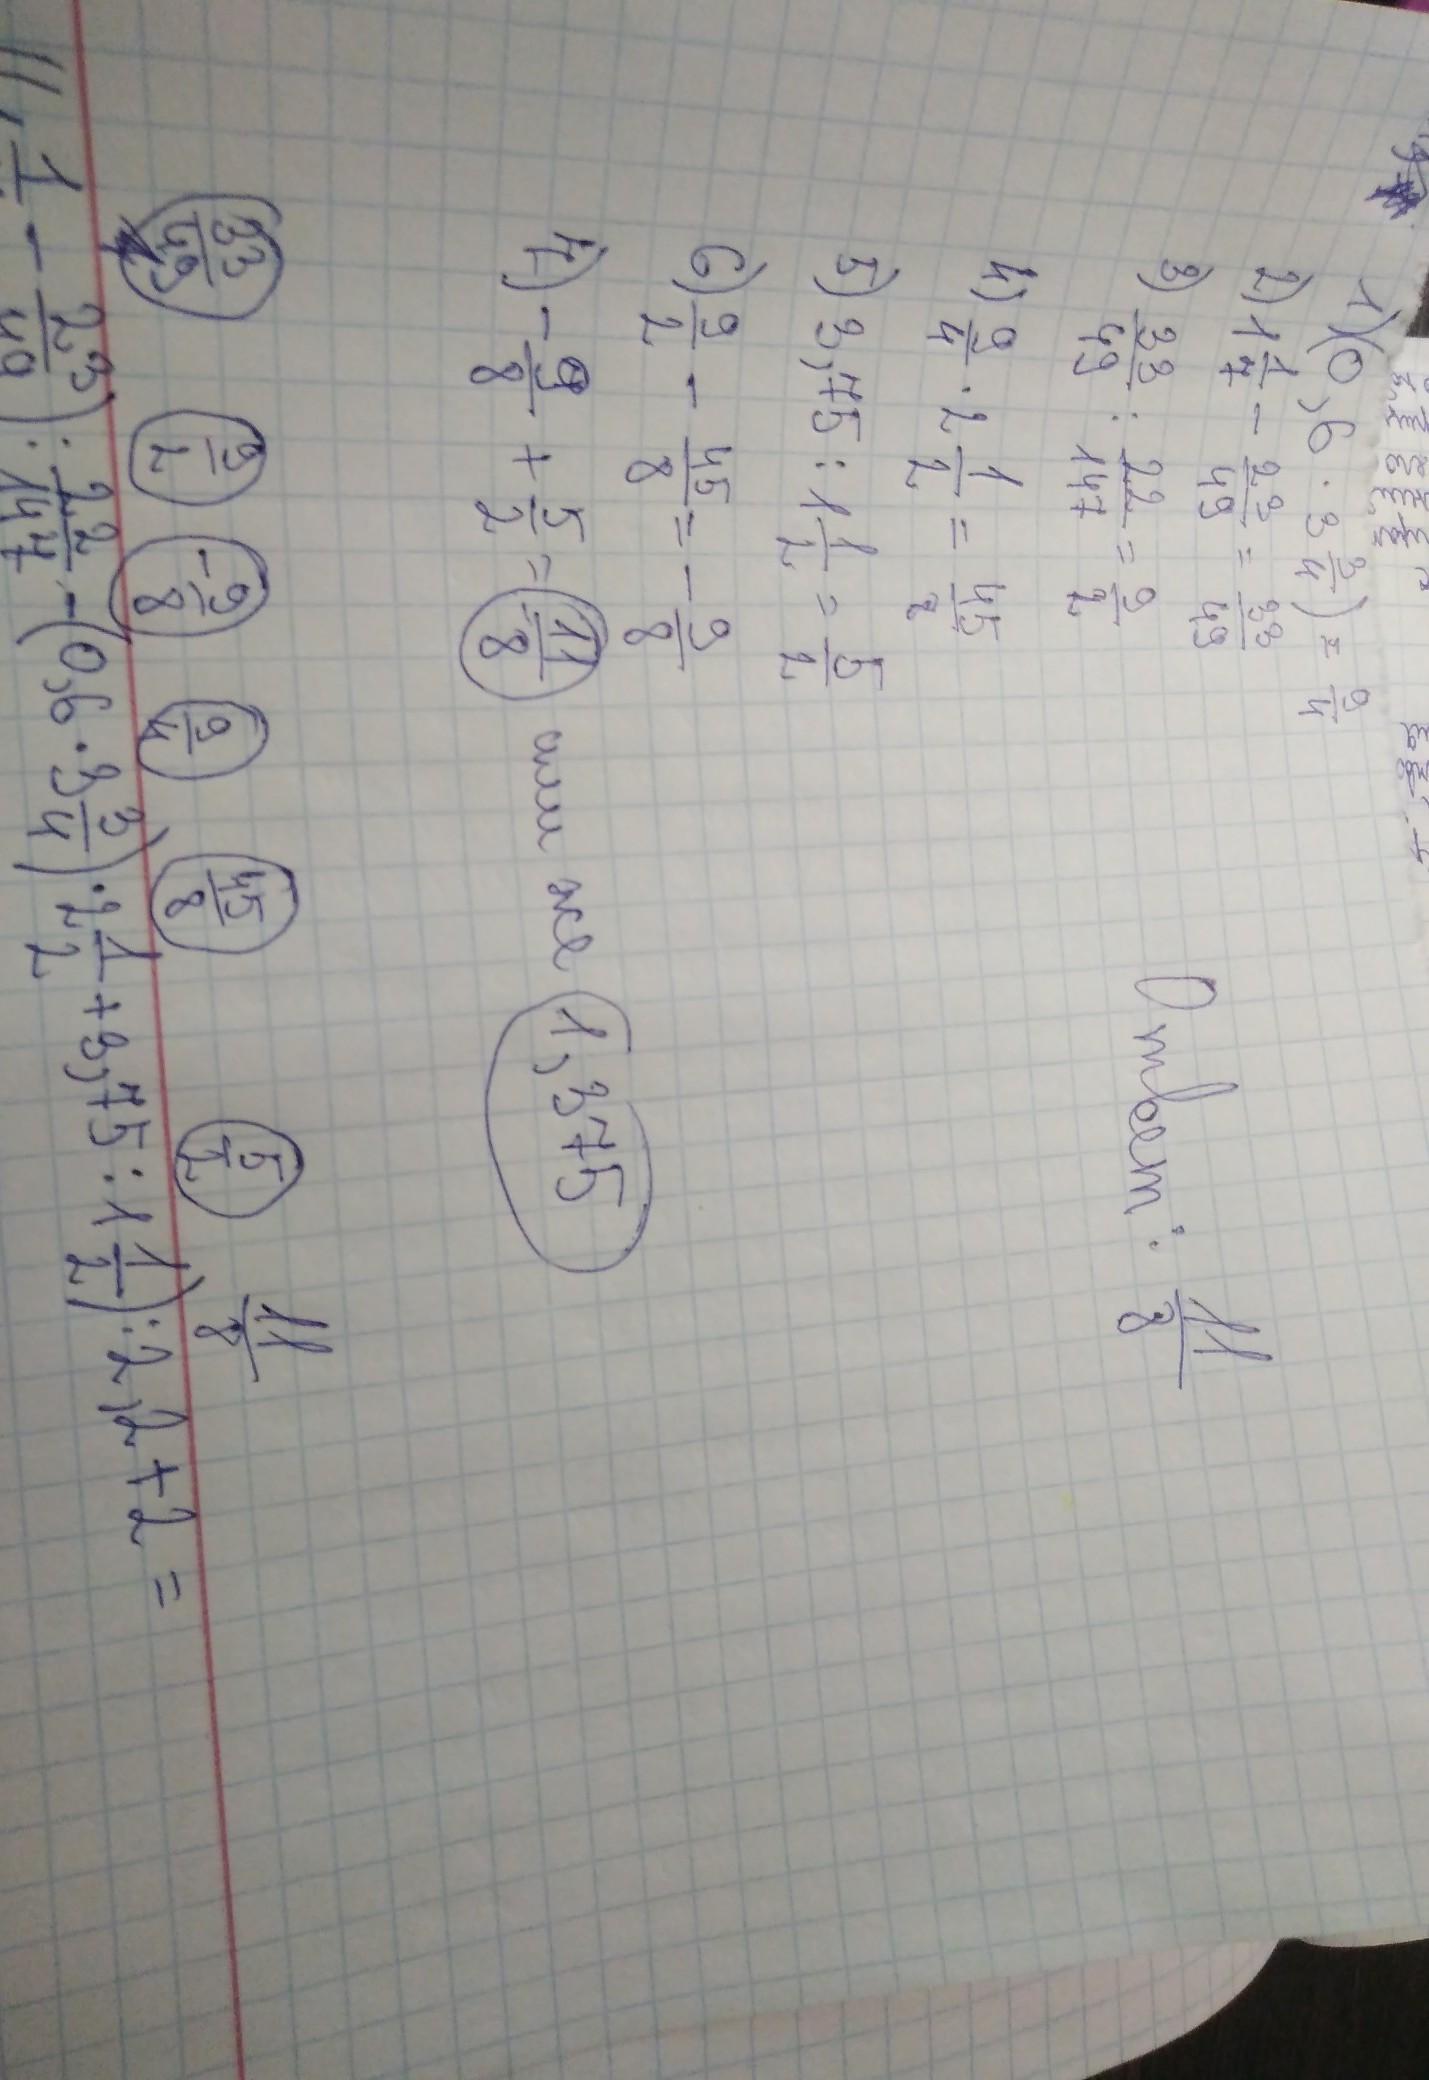 1) (0,6 · 3 3/4) = 9/4
2) 1 1/7 - 23/49 = 33/49
3) 33/49 : 22/147 = 9/2
4) 9/4 · 2 1/2 = 45/8
5) 3,75 : 1 1/2 = 5/2
6) 9/2 - 45/8 = -9/8
7) -9/8 + 5/2 = 11/8 или же 1,375
Ответ: 11/8
33/49 9/2 -9/8 9/4 45/8 5/2 11/8
1/7 - 23/49) : 22/147 - (0,6 · 3 3/4) · 2 1/2 + 3,75 : 1 1/2) : 2,2 + 2 =